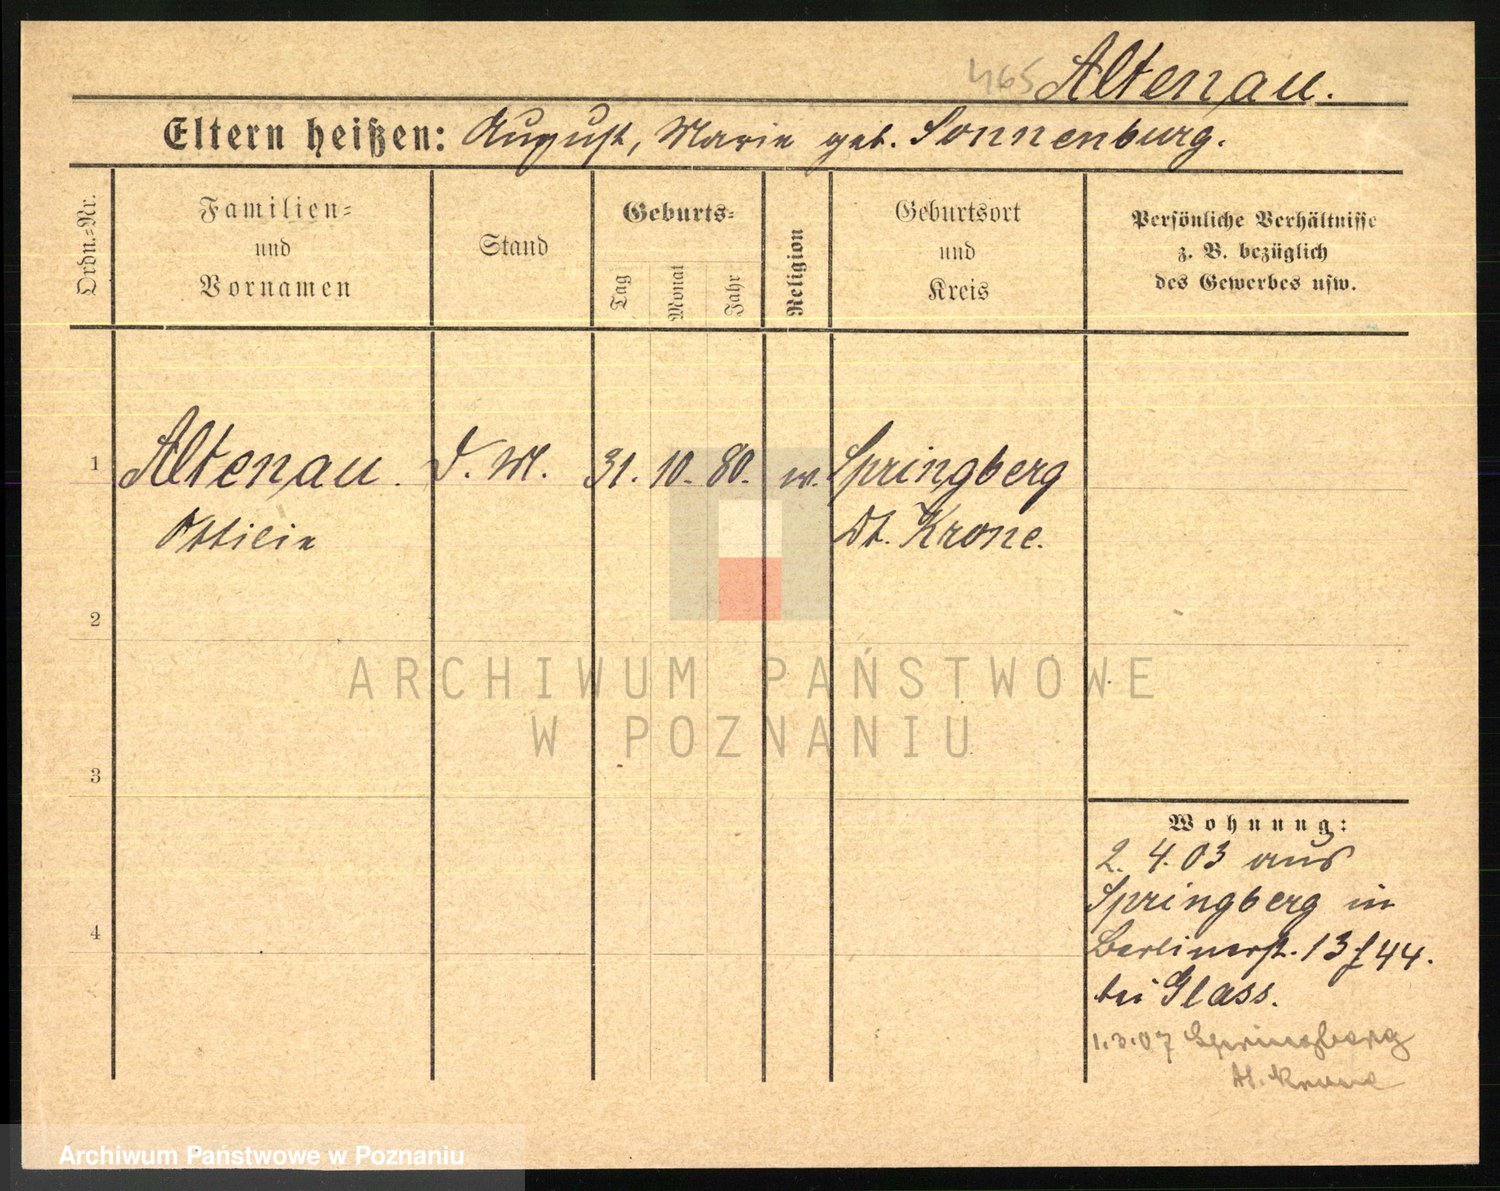 465 Altenau.
Eltern heißen: August, Marie geb. Sonnenburg.
Ordn.-Nr.
Familien-
und
Vornamen
Stand
Geburts-
Tag
Monat
Jahr
Religion
Geburtsort
und
Kreis
Persönliche Verhältnisse
z. B. bezüglich
des Gewerbes usw.
1 Altenau. D. M. 31. 10. 80. w. Springberg
Ottilie Dt. Krone.
2
3
4
Wohnung:
2. 4. 03 aus
Springberg in
Berlinerst. 13 f 44.
bei Glass.
1.3.07 Springberg
Dt. Krone
ARCHIWUM PAŃSTWOWE
W POZNANIU
Archiwum Państwowe w Poznaniu